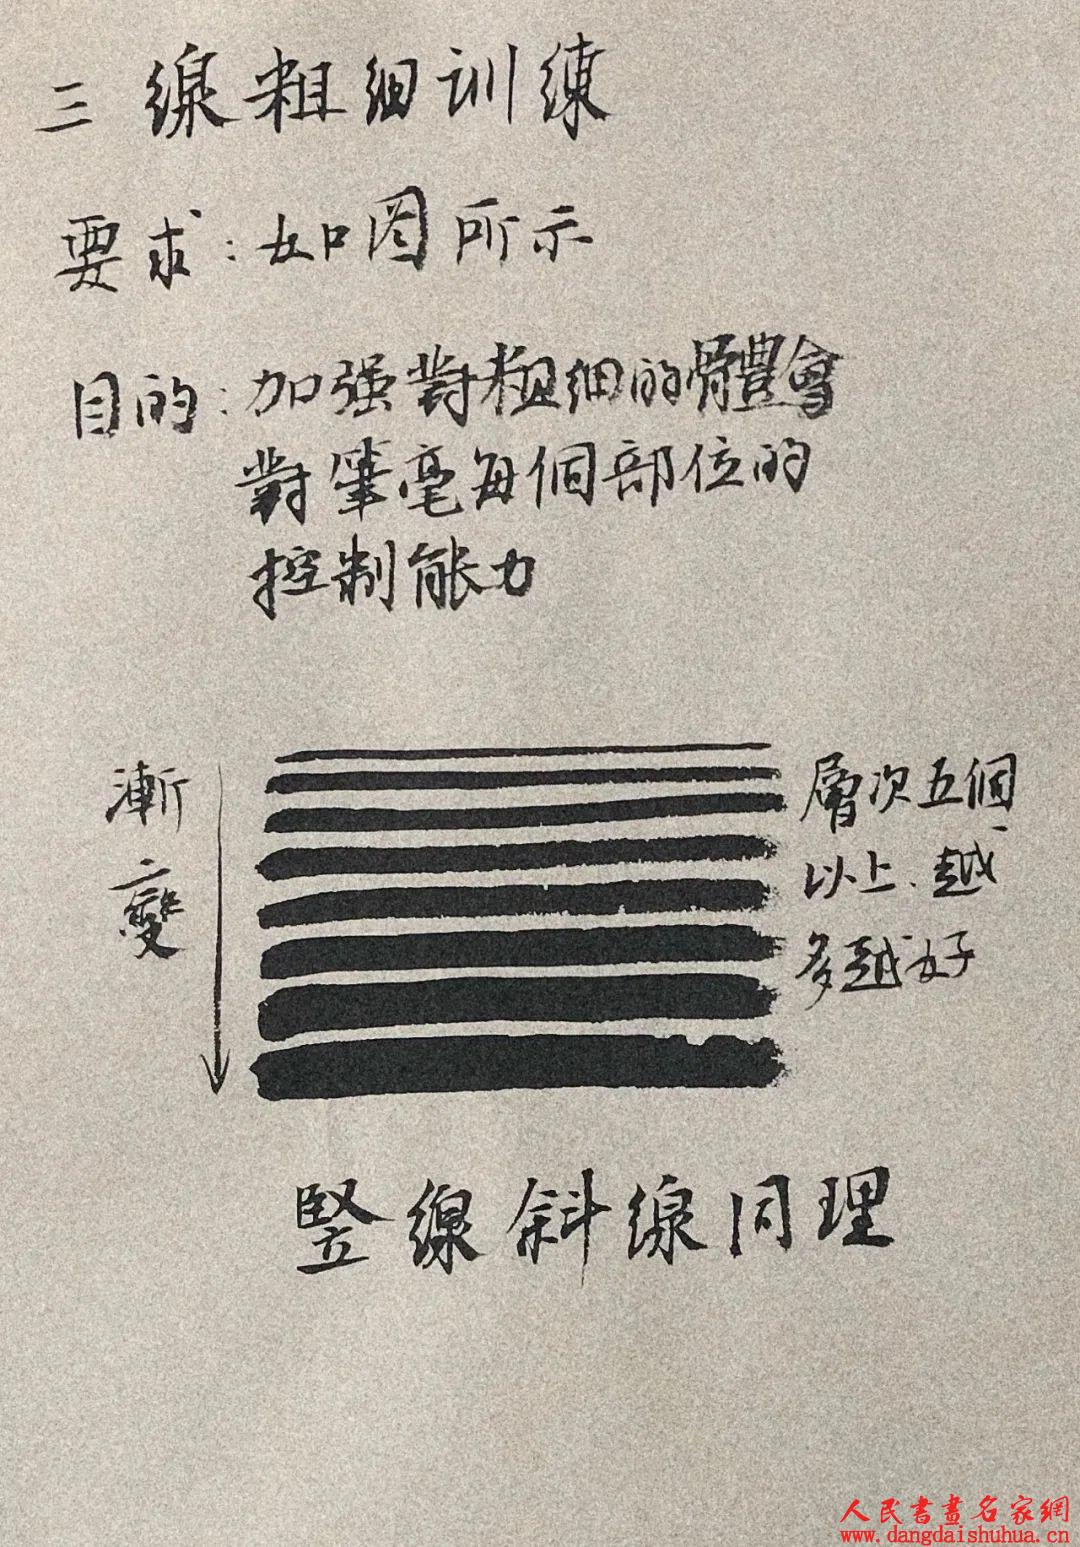 三 線粗细训練
要求：如图所示
目的：加强對粗细的體會
對筆毫每個部位的
控制能力
漸變
層次五個
以上、越
多越好
竖線斜線同理
人民書畫名家網
www.dangdaishuhua.cn